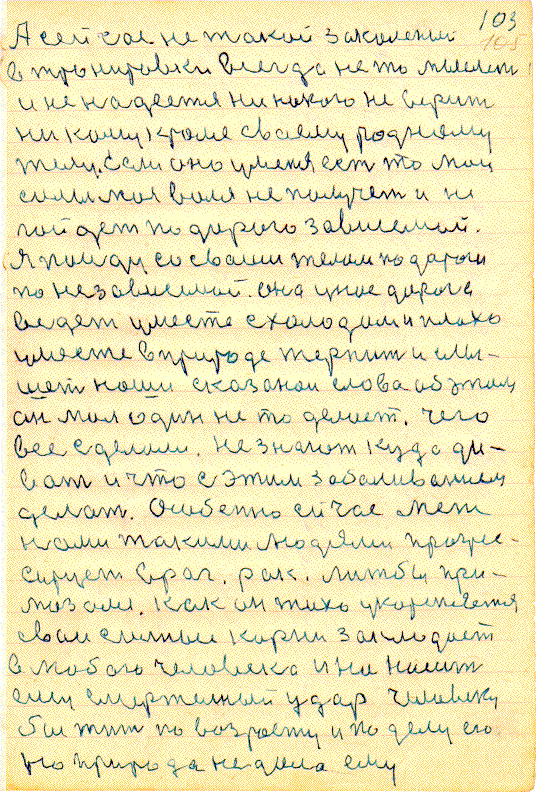 103
105
А сей час не такой закаленай
в тренировки всегда не то мыслет
и не надеется ни накого не верит
ни кому кроме своему родному
телу. Если оно уменя ест то моя
сила моя воля не получет и не
пойдет по дорого зависемай.
Я пойду со своим телом по дароги
по независемай. она уное дорога
ведет уместе схолодам и плохо
уместе в природе терпит и слы-
шет наши сказаноя слова об этом
он мол один не то делает, чего
все сделали. Не знают куда ди-
ват и что с этим забаливанием
делат. Особенно сичас меж
нами такими людями прогрес-
сирует враг. рак.
Как он тихо укореняется
сваи сильные карни закладает
в любого человека и на носит
ему смертелный удар человеку
бы жит по возросту и по делу его
но природа не дала ему